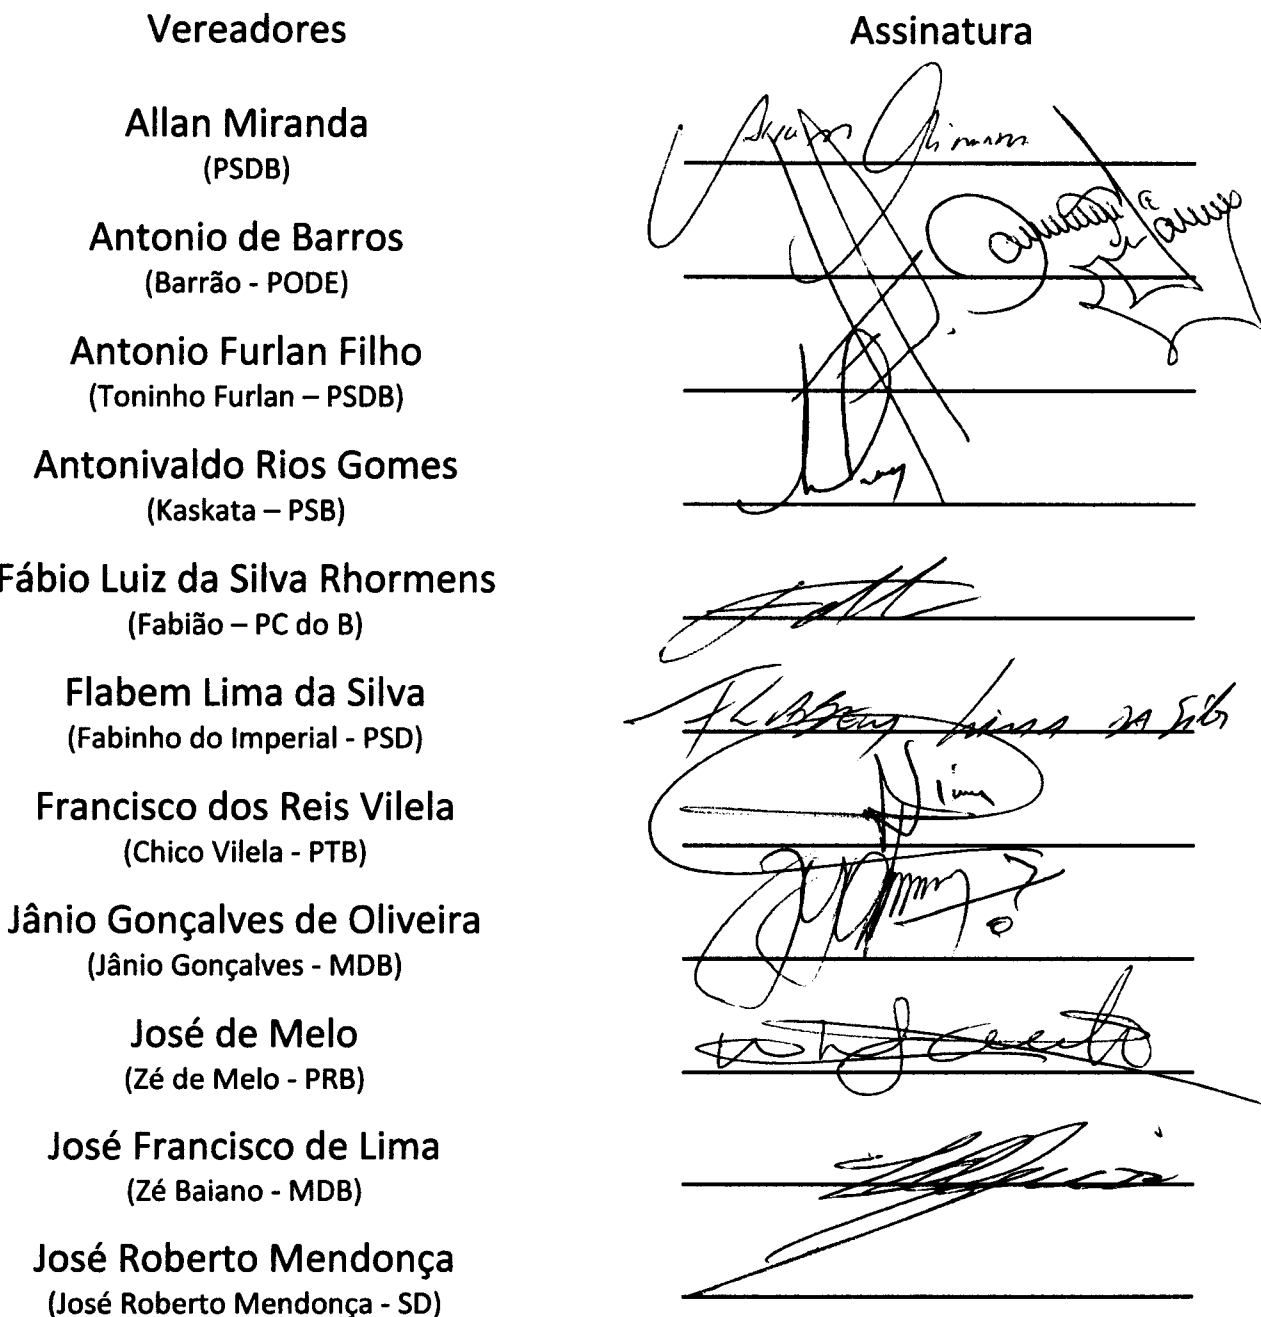 Vereadores Assinatura
Allan Miranda
(PSDB)
Antonio de Barros
(Barrão - PODE)
Antonio Furlan Filho
(Toninho Furlan – PSDB)
Antonivaldo Rios Gomes
(Kaskata – PSB)
Fábio Luiz da Silva Rhormens
(Fabião – PC do B)
Flabem Lima da Silva
FLABEM Lima DA Silva
(Fabinho do Imperial - PSD)
Francisco dos Reis Vilela
(Chico Vilela - PTB)
Jânio Gonçalves de Oliveira
(Jânio Gonçalves - MDB)
José de Melo
(Zé de Melo - PRB)
José Francisco de Lima
(Zé Baiano - MDB)
José Roberto Mendonça
(José Roberto Mendonça - SD)